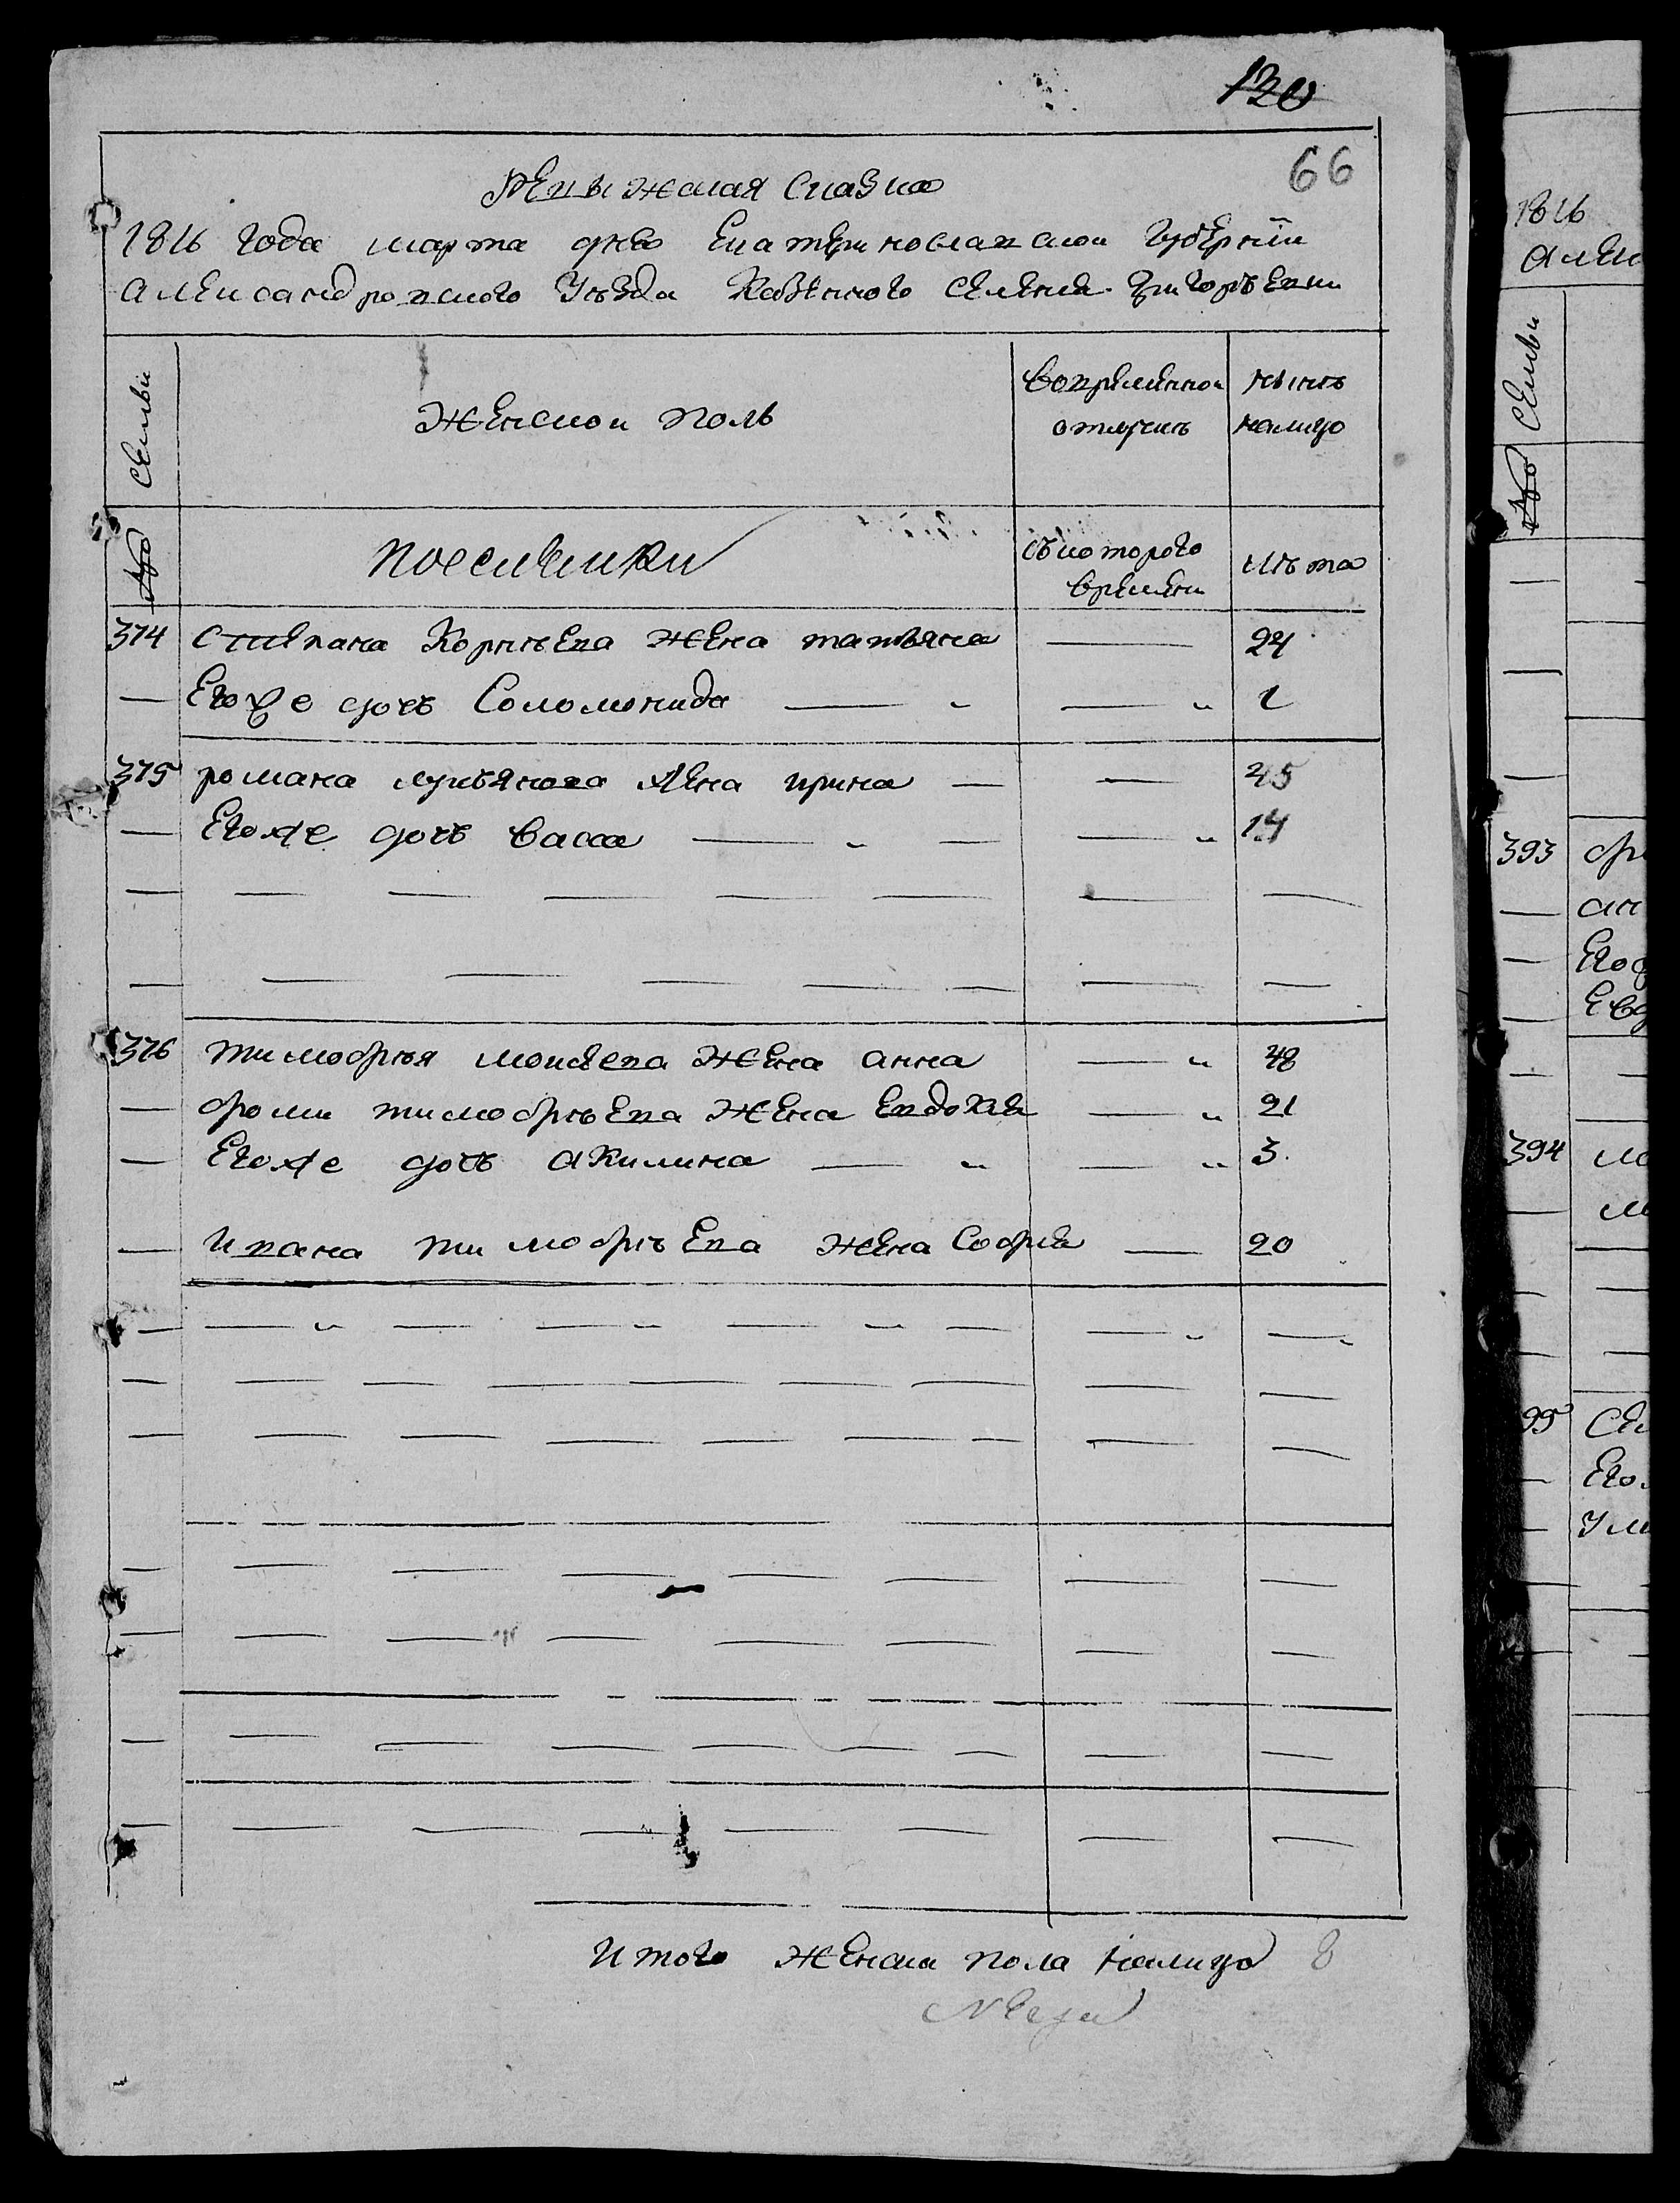 120
66
Ревижская сказка
1816 года марта дня Екатеринославской Губернiи
Александровского Уезда Казенного селения Григорьевки
семьи
Женской поль
вовременной отлучкъ
нынъ налицо
№
съкоторого времени
лъта
374 Степана Корнъева жена татьяна — 24
— Егоже дочь Соломонида — „ — „ 1
375 романа лукьянова жена ирина — — 45
— Егоже дочь васса — „ — — „ 14
376 тимофъя моисеева жена анна — „ 48
— фоми тимофъева жена Евдокия — „ 21
— Егоже дочь акилина — „ — „ 3
— ивана тимофъева жена София — 20
Итого женска пола налицо 8
1816
Алек
семьи
№
393 фи
ан
Егод
Евд
394 ма
ма
95 Се
Его
Ули